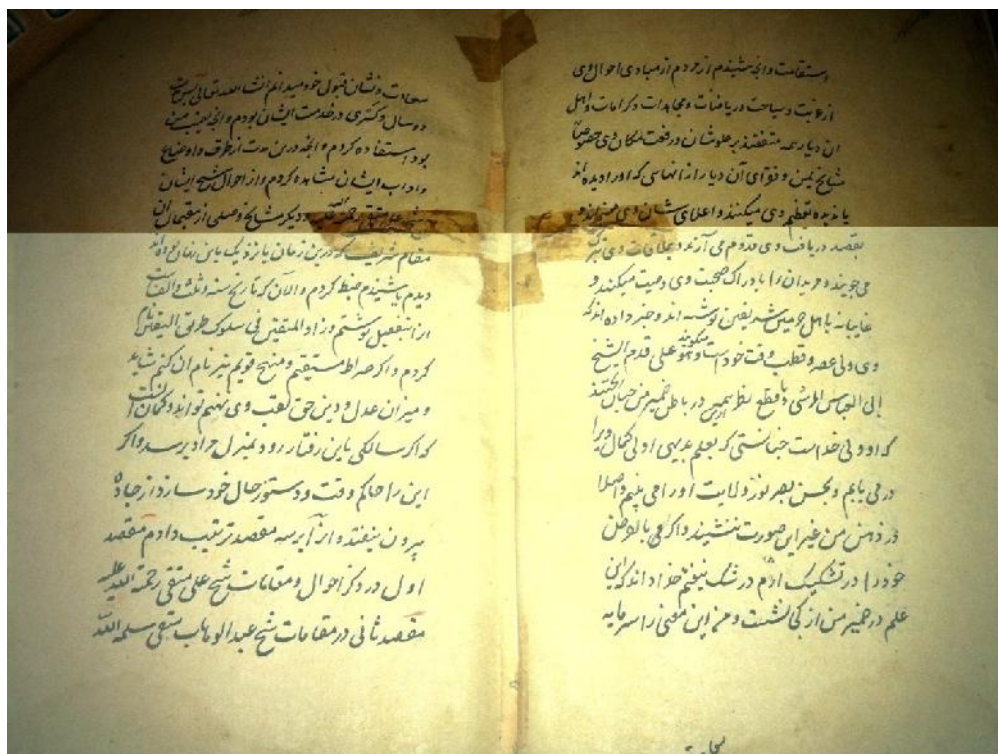 استقامت و آنچه شنیدم از مردم از مبادی احوال وی
از غربت و سیاحت و ریاضات و مجاهدات و کرامات و اهل
آن دیار همه متفقند بر علو شان و رفعت مکان وی خصوصا
مشایخ یمن و فقرای آن دیار از آنهاسی که او را دیده اند
یا ندیده تعظیم وی میکنند و اعلای شان وی مینمایند و
بقصد دریافت وی قدوم می آرند و بملاقات وی تبرک
می جویند و مریدان را بادراک صحبت وی وصیت میکنند و
غایبانه باهل حرمین شریفین نوشته اند و خبر داده اند که
وی ولی عصر و قطب وقت خود است و میگویند هو علی قدم الشیخ
ابی العباس المرسی با قطع نظر ازین در باطن ضمیر من چنان
که او ولی خداست چنانستی که بعلم بدیهی اولی کمال ویرا
در می یابم و بحس بصر نور ولایت او را می بینم و اصلا
در ذهن من غیر این صورت ننشیند و اگر فی
خود را در تشکیک اندازم در شک نیفتم خدا داند که این
علم در ضمیر من از کی نشست و من این معنی را سرمایه
سعادت و نشان قبول خود میدانم انشاء الله تعالی
دو سال و کسری در خدمت ایشان بودم و آنچه نصیب من
بود استفاده کردم و آنچه درین مدت از طرق و اوضاع
و آداب ایشان مشاهده کردم و از احوال شیخ ایشان
شیخ علی متقی رحمة الله علیه و دیگر مشایخ و صلی از مقیمان آن
مقام شریف که درین زمان یا نزدیک باین زمان بوده اند
دیدم یا شنیدم ضبط کردم و الآن که تاریخ سنه و ثلث و الف است
آنرا بتفصیل نوشتم و زاد المتقین فی سلوک طریق الیقین نام
کردم و اگر صراط مستقیم و منهج قویم نیز نام آن کنم شاید
و میزان عدل و دین حق لقب وی نهم تواند و گمان آنست
که اگر سالکی باین رفتار رود بمنزل مراد برسد و اگر
این را حاکم وقت و دستور حال خود سازد از جادّه
بیرون نیفتد و آنرا بر سه مقصد ترتیب دادم مقصد
اول در ذکر احوال و مقامات شیخ علی متقی رحمة الله علیه
مقصد ثانی در مقامات شیخ عبد الوهاب متقی سلمه الله